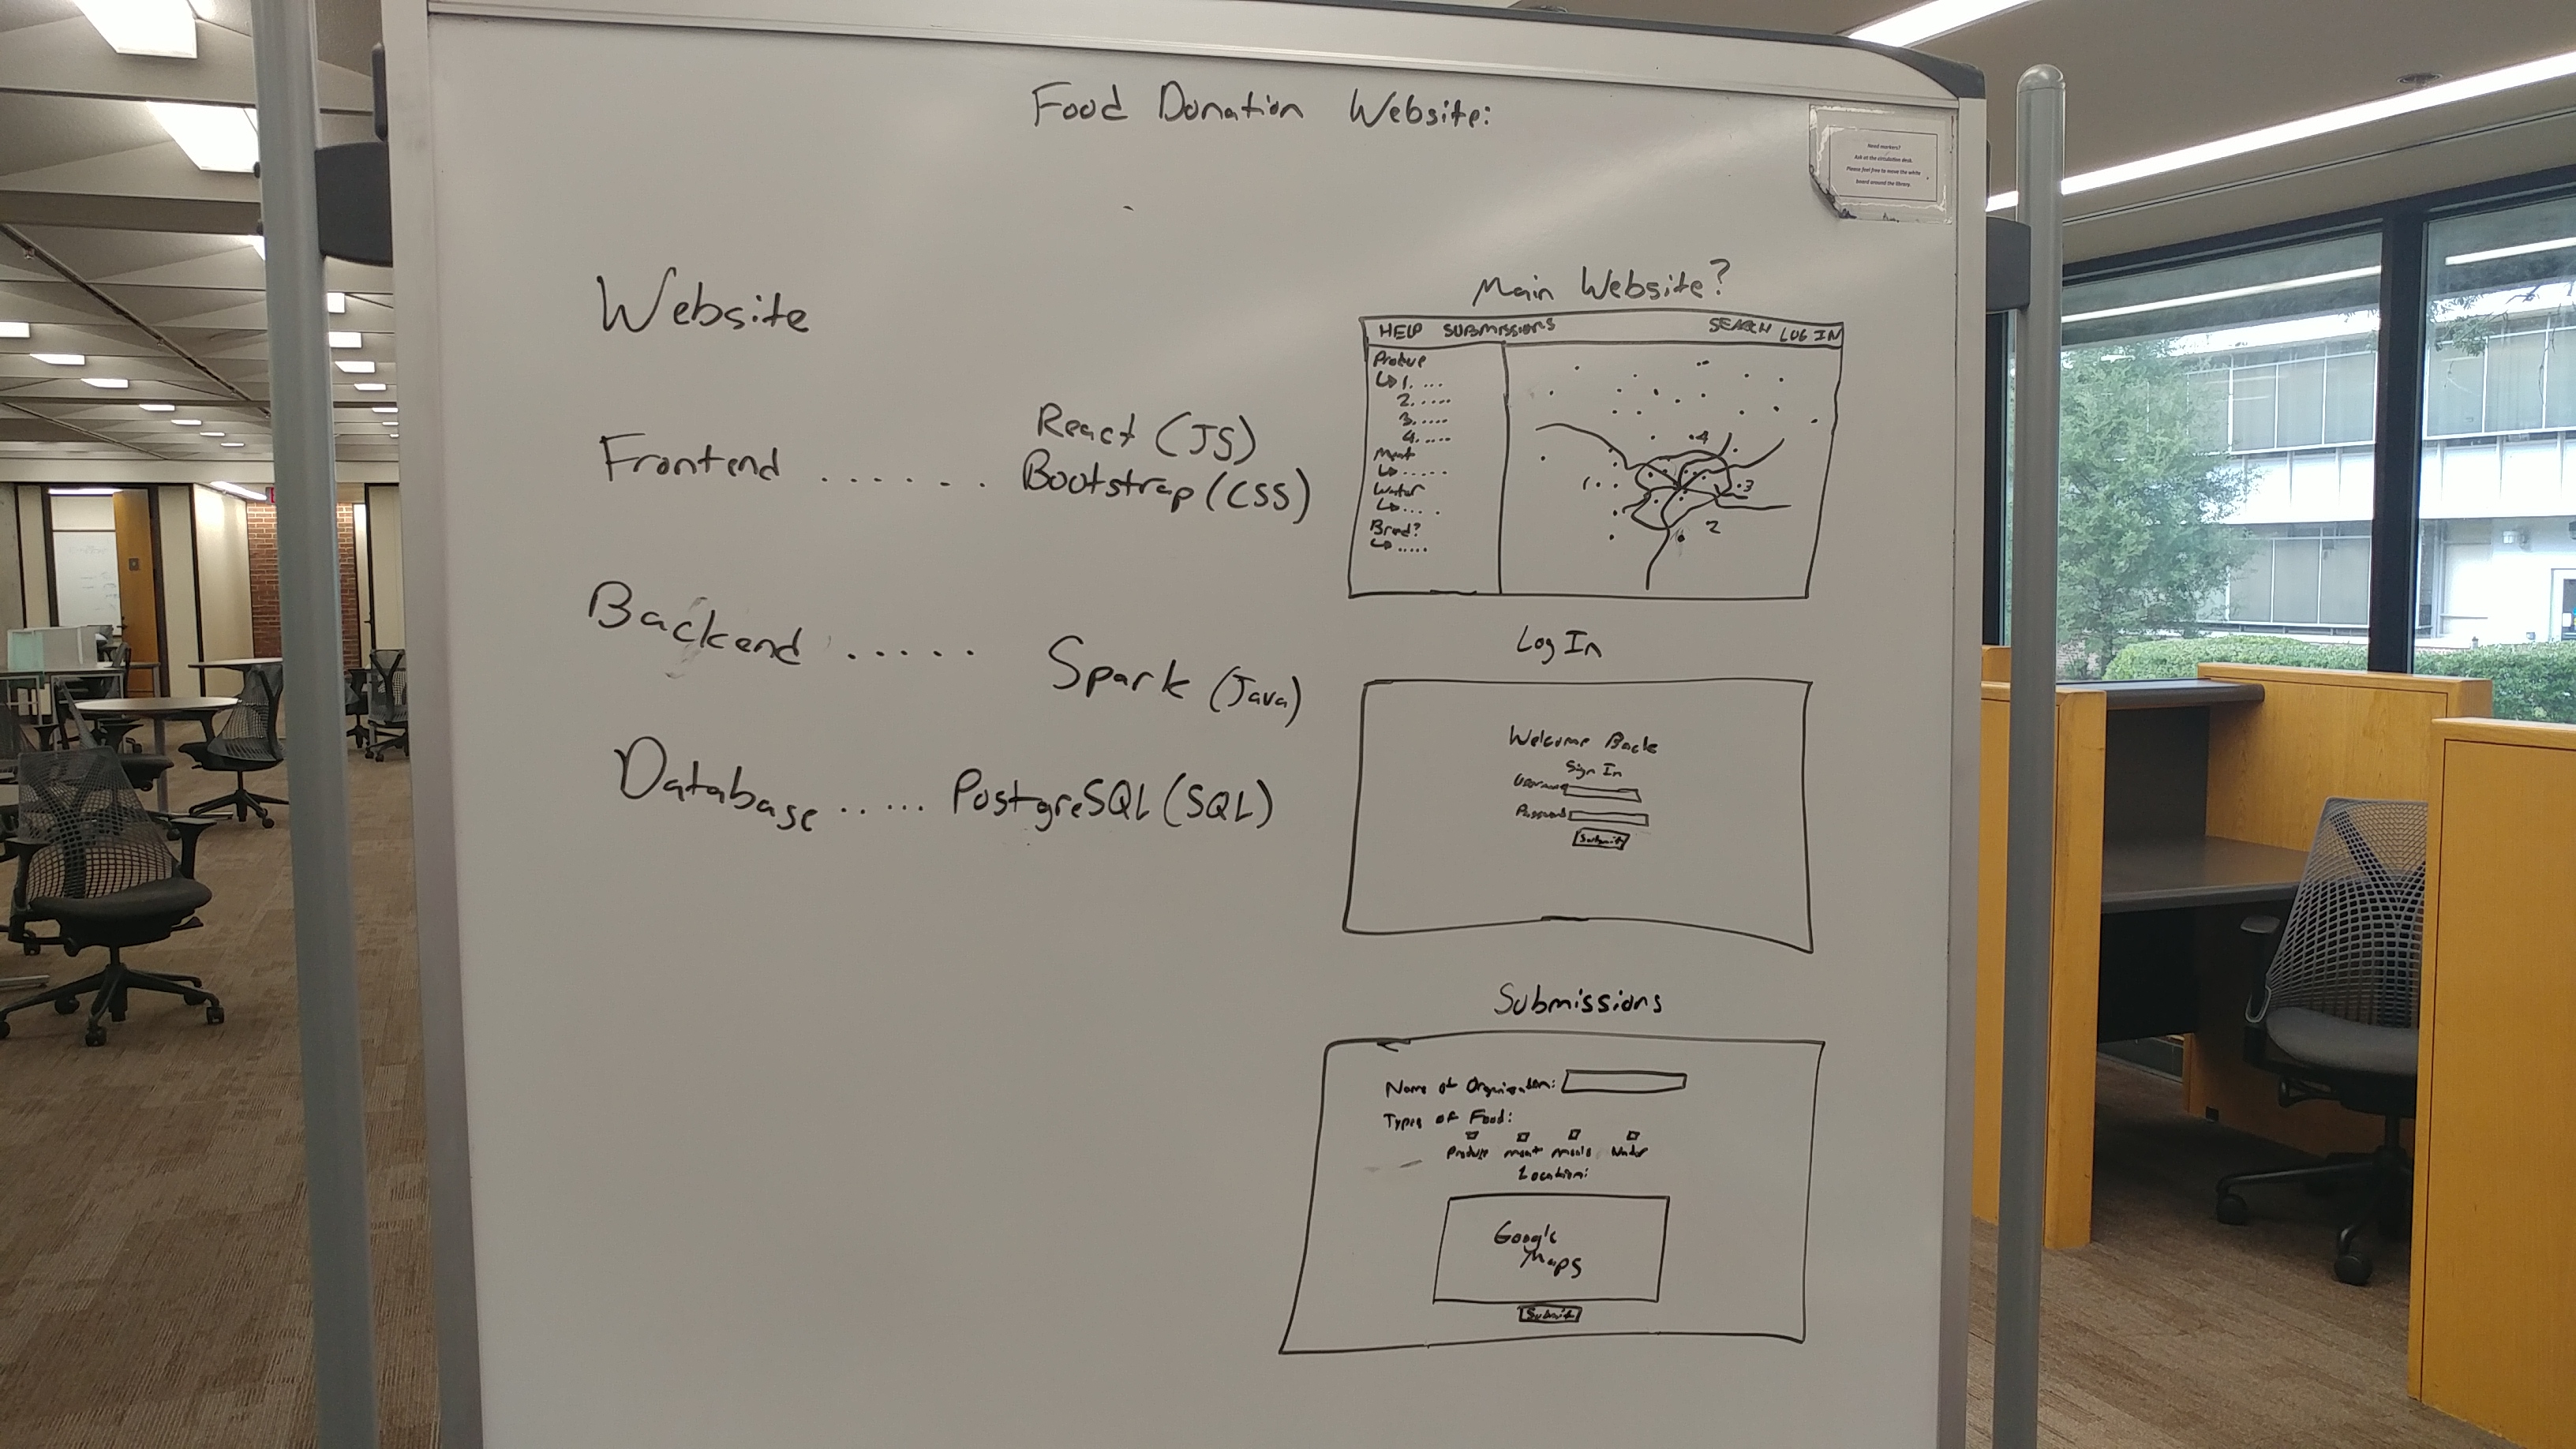 Food Donation Website:
Need markers?
Ask at the circulation desk.
Please feel free to move the white
board around the library.
Website
Frontend ......
React (JS)
Bootstrap (CSS)
Backend .....
Spark (Java)
Database ......
PostgreSQL (SQL)
Main Website?
HELP SUBMISSIONS SEARCH LOG IN
Produce
↳ 1. ....
2. .....
3. ....
4. ....
Meat
↳ .....
Water
↳ .... .
Bread?
↳ .....
4
1
3
2
Log In
Welcome Back
Sign In
Username
Password
Submit
Submissions
Name of Organization:
Types of Food:
Produce meat meals Water
Location:
Google
Maps
Submit